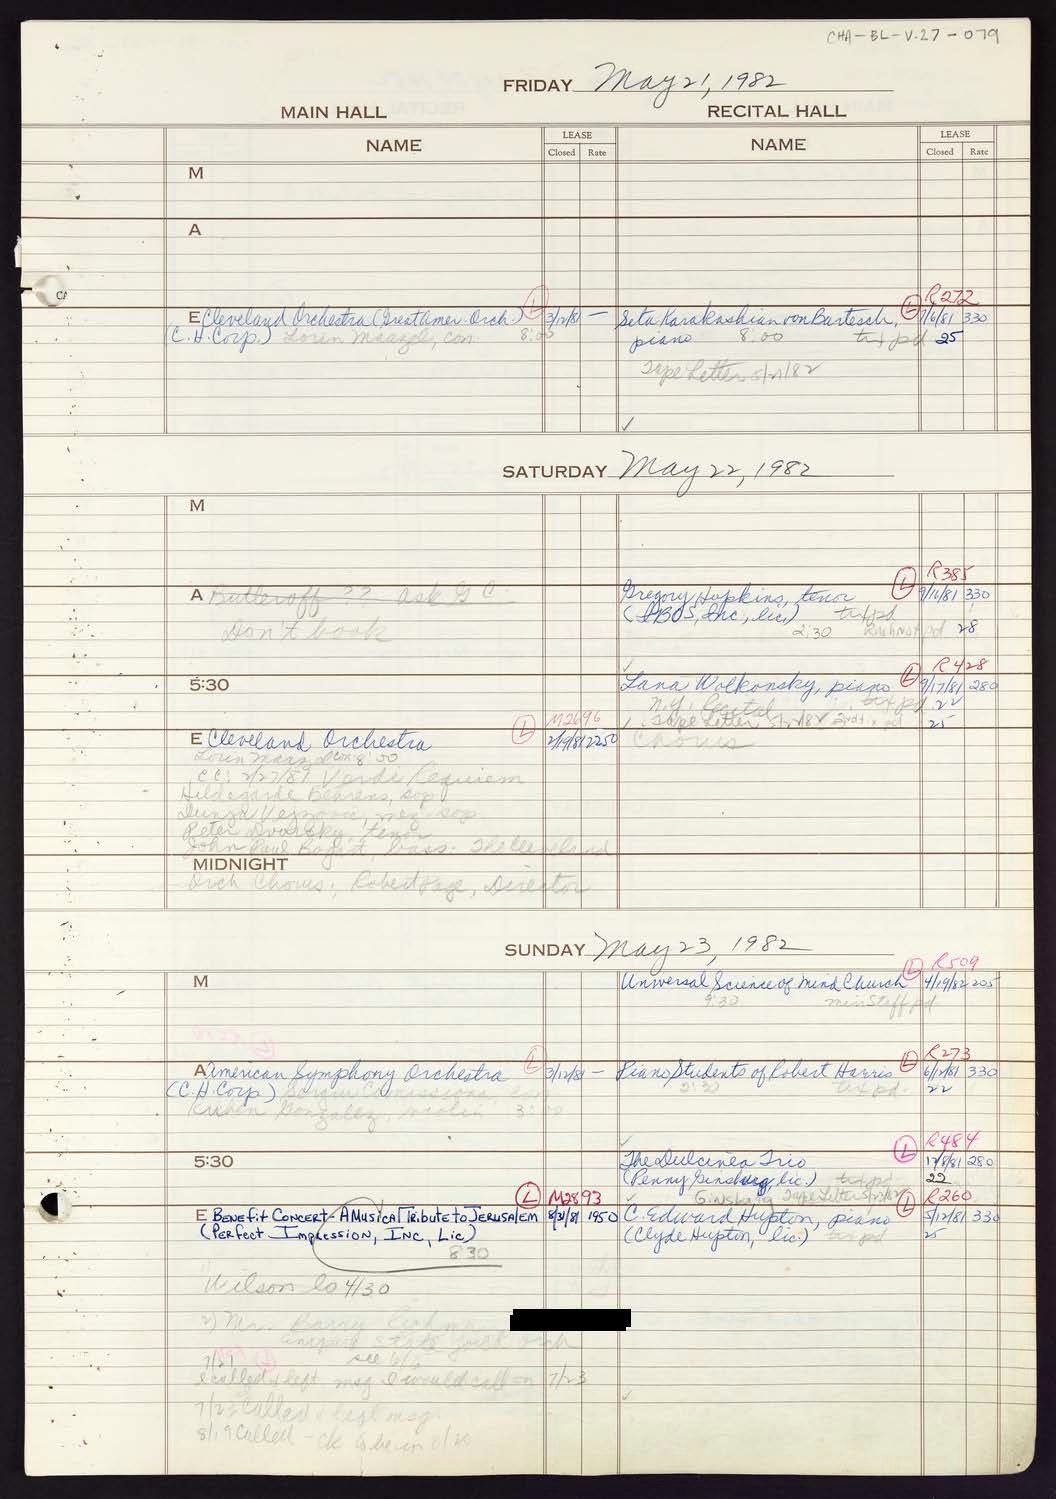 CHA-BL-V.27-079
FRIDAY May 21, 1982
MAIN HALL RECITAL HALL
NAME LEASE NAME LEASE
Closed Rate Closed Rate
M
A
R272
E Cleveland Orchestra (Great Amer. Orch.) L 3/12/81 — Seta Karakashian von Bartesch, L 7/6/81 330
C.H. Corp.) Lorin Maazel, con. 8:00 piano 8:00 tix pd 25
Tape Letter 5/21/82
✓
SATURDAY May 22, 1982
M
R385
A Butleroff ?? ask G.C. Gregory Hopkins, tenor L 9/16/81 330
(IBOS, Inc., lic.) tix pd
Don't book 2:30 pd 28
✓
R428
5:30 Lana Wolkonsky, piano L 9/17/81 280
N.Y. Recital tix pd 22
M2696 ✓ Tape Letter 2nd tix pd 25
E Cleveland Orchestra L 2/19/81 2250 Chorus
Lorin Maazel con. 8:00
CC: 2/27/81 Verdi Requiem
Hildegarde Behrens, sop
Dunja Vejzovic, mez-sop.
Peter Dvorsky, tenor
John Paul Bogart, bass: The Cleveland
MIDNIGHT
Orch Chorus; Robert Page, Director
SUNDAY May 23, 1982
R509
M Universal Science of Mind Church L 4/19/82 205
9:30 min Staff pd
R273
A American Symphony Orchestra L 3/12/81 — Piano Students of Robert Harris L 330
(C.H. Corp) Sergiu Comissiona, con 2:30 tix pd. 22
Ruben Gonzalez, violin 3:00
✓
R484
5:30 The Dulcinea Trio L 280
(Penny Ginsburg, lic.) tix pd 22
L M2893 Ginsburg Tape Letter R260
E Benefit Concert - A Musical Tribute to Jerusalem 8/31/81 1950 C. Edward Hupton, piano L 5/12/81 330
(Perfect Impression, Inc, Lic) (Clyde Hupton, lic.) tix pd 25
830
Wilson to 4/30
2) Mr. Barry
State Youth Orch
7/21 see
I called & left msg I would call on 7/23
7/23 Called & left msg.
8/19 Called - ck to be in 8/20
✓